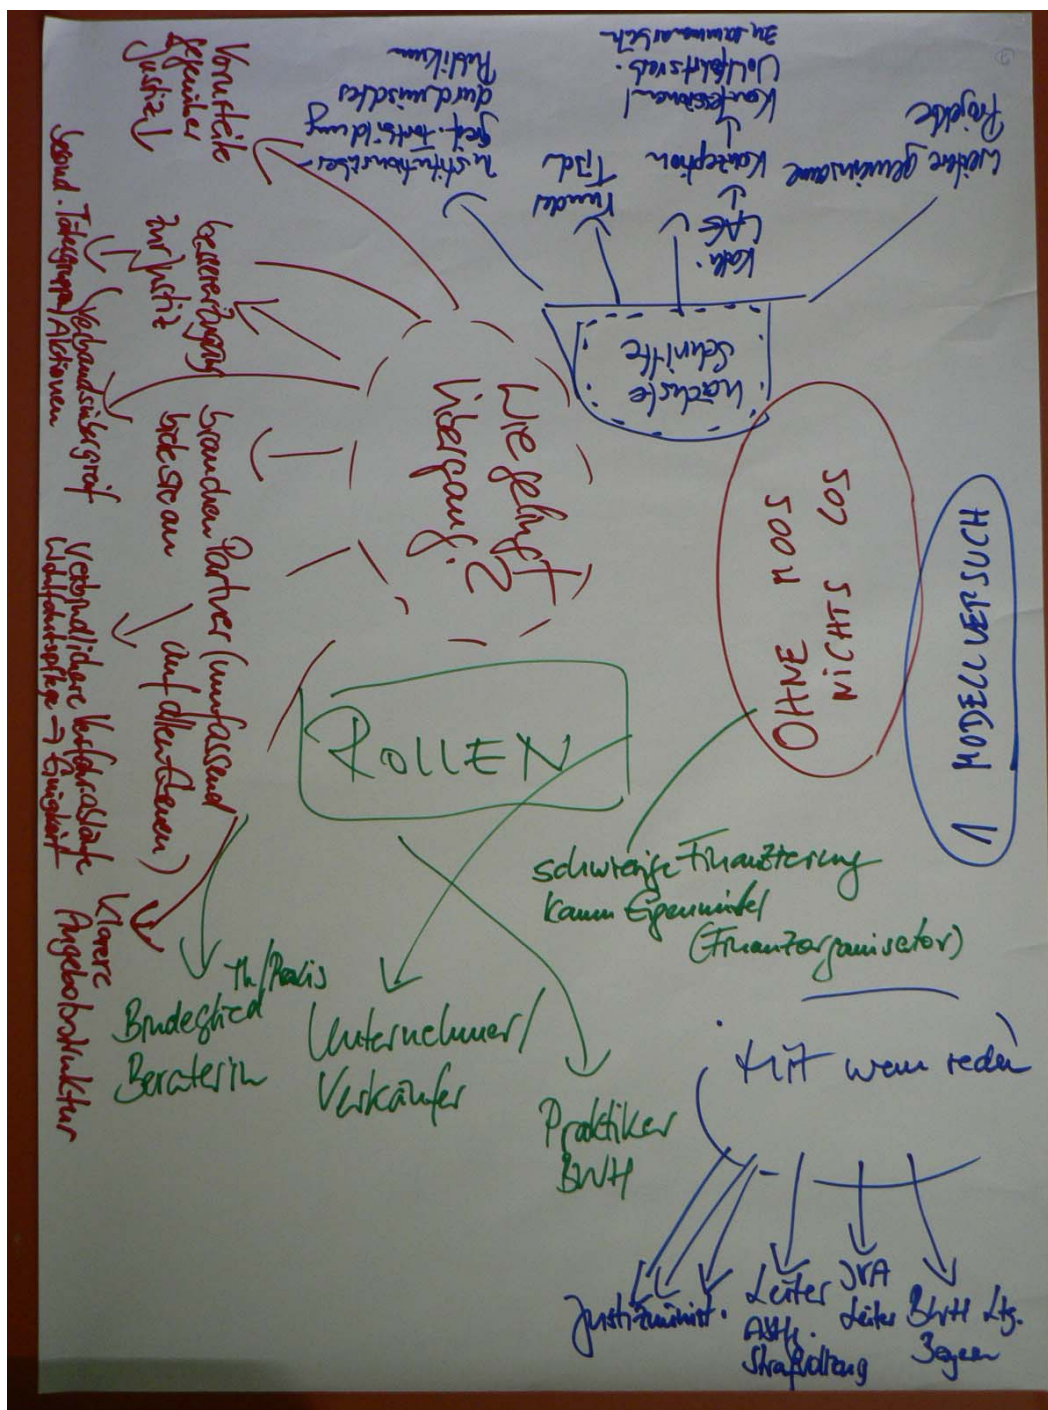 Wie gelingt
Übergang?
Vorurteile
gegenüber
Justiz ↓
besserer Zugang
zur Justiz
brauchen Partner (umfassend
auf allen Ebenen)
Verbandsübergreif
Aktionen
Wohlfahrtspflege → Einigkeit
Klarere
Angebotsstruktur
nächste
Schritte
weitere gemeinsame
Projekte
Kath.
LAG
↓
Konzeption
↓
Konfessional
Wohlfahrtsverb.
zusammenarbeit
Institutionsüber-
greif. Fortbildung
durchmischtes
Publikum
OHNE MOOS
NICHTS LOS
1 MODELLVERSUCH
ROLLEN
schwierige Finanzierung
kaum Eigenmittel
(Finanzorganisator)
Th/Praxis
Bindeglied
Beraterin
Unternehmer/
Verkäufer
Praktiker
BWH
Mit wem reden
Justizminist.
Leiter
Abtlg.
Strafvollzug
JVA
Leiter
BWH Ltg.
Bayern